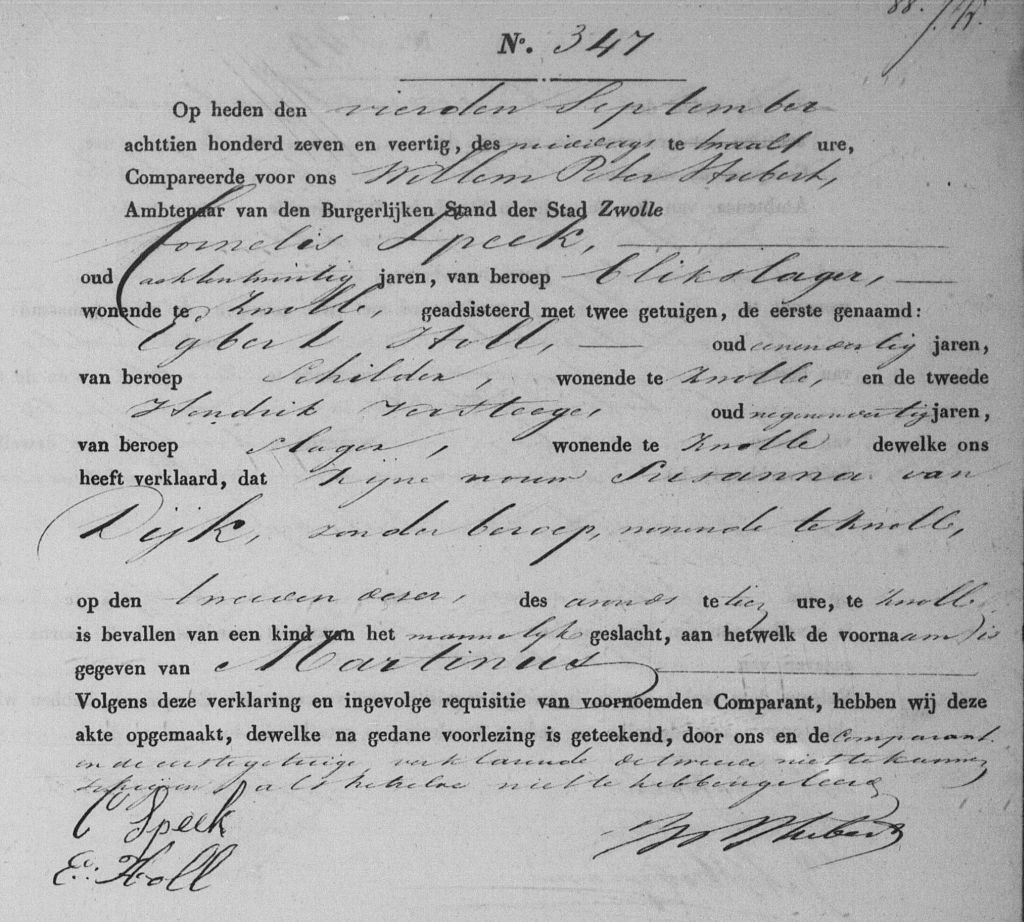 88.
N.º 347
Op heden den vierden September
achttien honderd zeven en veertig, des middags te twaalf ure,
Compareerde voor ons Willem Peter Hubert,
Ambtenaar van den Burgerlijken Stand der Stad Zwolle
Cornelis Speek,
oud achtentwintig jaren, van beroep blikslager,
wonende te Zwolle, geadsisteerd met twee getuigen, de eerste genaamd:
Egbert Holl, oud eenenveertig jaren,
van beroep Schilder, wonende te Zwolle, en de tweede
Hendrik Versteege, oud negenenveertig jaren,
van beroep Slager, wonende te Zwolle dewelke ons
heeft verklaard, dat zijne vrouw Susanna van
Dijk, zonder beroep, wonende te Zwolle,
op den tweeden dezer, des avonds te tien ure, te Zwolle,
is bevallen van een kind van het mannelijk geslacht, aan hetwelk de voornaam is
gegeven van Martinus
Volgens deze verklaring en ingevolge requisitie van voornoemden Comparant, hebben wij deze
akte opgemaakt, dewelke na gedane voorlezing is geteekend, door ons en de Comparant
en de eerste getuige, verklarende de tweede niet te kunnen
schrijven als hetzelve niet te hebben geleerd
C Speek
E: Holl
W P Hubert